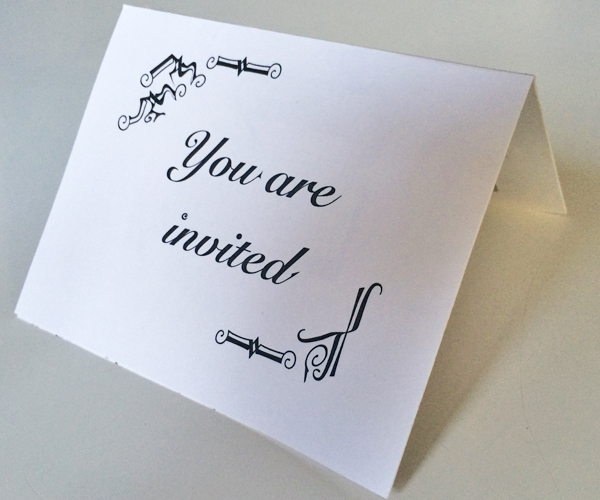 You are
invited